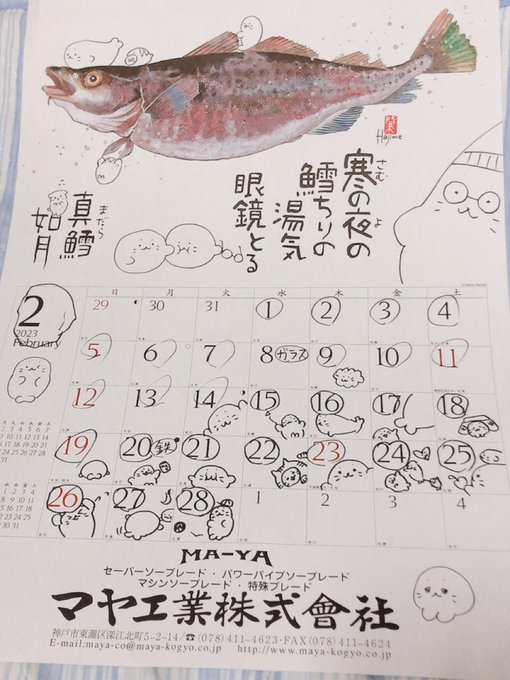 Hajime
寒の夜の
さむ よ
鱈ちりの湯気
眼鏡とる
真鱈
まだら
如月
2
2023
February
日 月 火 水 木 金 土
29 30 31 1 2 3 4
5 6 7 8 ガラス 9 10 11
12 13 14 15 16 17 18
19 20 鉄 21 22 23 24 25
26 27 28 1 2 3 4
MA-YA
セーバーソーブレード・パワーパイプソーブレード
マシンソーブレード・特殊ブレード
マヤ工業株式會社
神戸市東灘区深江北町5-2-14/☎(078)411-4623・FAX(078)411-4624
E-mail:maya-co@maya-kogyo.co.jp http://www.maya-kogyo.co.jp